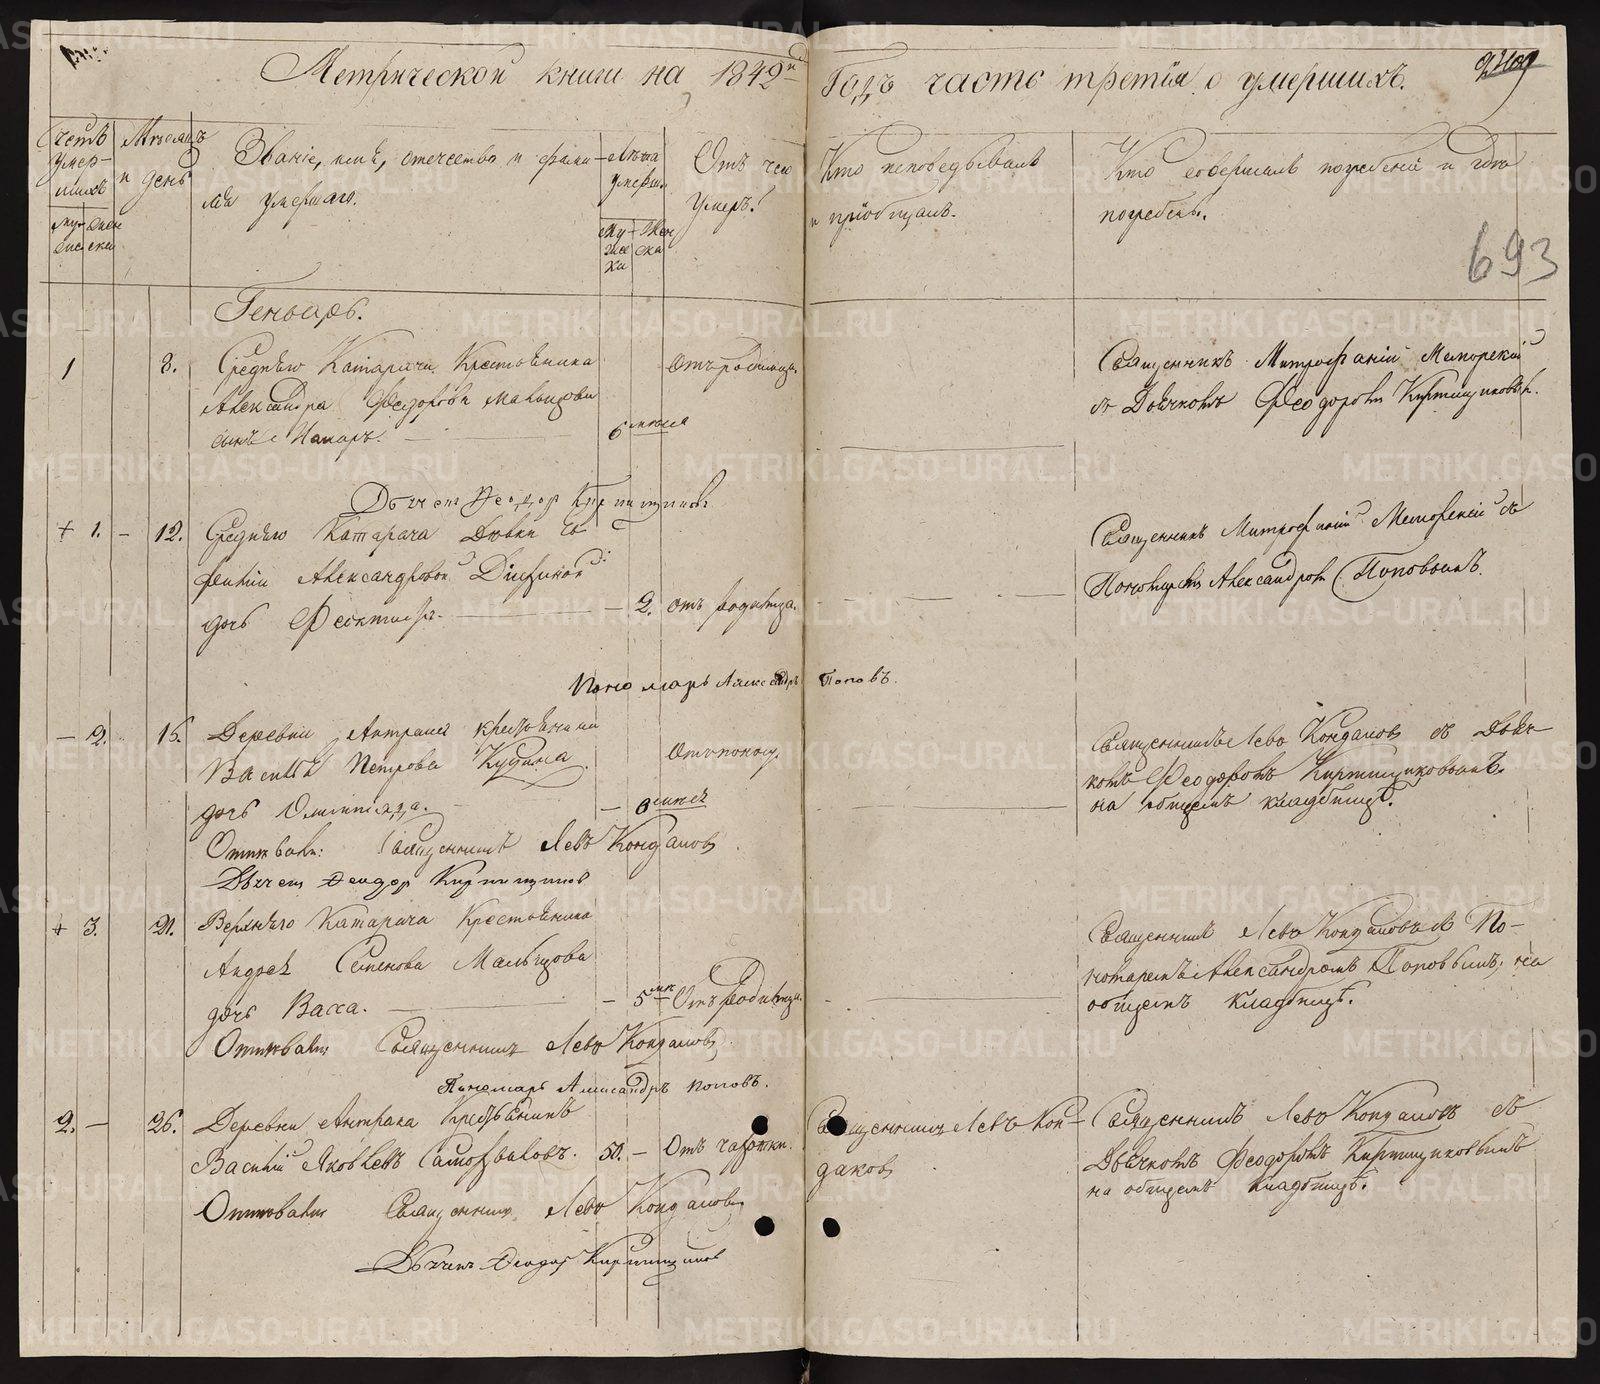 Метрической книги на 1842й Годъ часть третія о умершихъ.
693
Счетъ умершихъ
Мѣсяцъ и день
Званіе, имя, отечество и фамилія умершаго.
Лѣта умершихъ
Отъ чего умеръ.
Кто исповѣдывалъ и пріобщалъ.
Кто совершалъ погребеніе и гдѣ погребенъ.
Геньварь.
1 8. Средняго Катарача Крестьянина Отъ родимца.
Александра Федорова Мальцова
сынъ Макаръ. 6
Священникъ Митрофаній
съ Дьячкомъ Феодоромъ Кирпищиковымъ.
Дьячекъ Федор Кирпищиковъ
+ 1. – 12. Средняго Катарача Дѣвки Ев-
фиміи Александровой
дочь Феоктиста. – 2. отъ родимца.
Священникъ Митрофаній съ
Пономаремъ Александромъ Поповымъ.
Пономарь Александръ Поповъ.
– 2. 15. Деревни Антрака крестьянина
Василья Петрова Кудина
дочь Олимпіада. –
Священникъ Левъ Кондаков съ Дьяч-
комъ Феодоромъ Кирпищиковымъ.
на общемъ кладбищѣ.
Отпѣвали: Священникъ Левъ Кондаковъ
Дьячекъ Феодор Кирпищиков
+ 3. 21. Верхняго Катарача Крестьянина
Андрея Семенова Мальцова
дочь Васса. – 5 Отъ родимца.
Священникъ Левъ Кондаковъ съ По-
номаремъ Александромъ Поповымъ, на
общемъ кладбищѣ.
Отпѣвали Священникъ Левъ Кондаковъ
Пономарь Александръ Поповъ.
2. – 26. Деревни Антрака Крестьянинъ
Василій Яковлевъ Самохваловъ. 50. – Отъ чахотки.
Священникъ Левъ Кон-
даков
Священникъ Левъ Кондаковъ съ
Дьячкомъ Феодоромъ Кирпищиковымъ
на общемъ кладбищѣ.
Отпѣвали Священникъ Левъ Кондаковъ
Дьячекъ Феодоръ Кирпищиков
METRIKI.GASO-URAL.RU